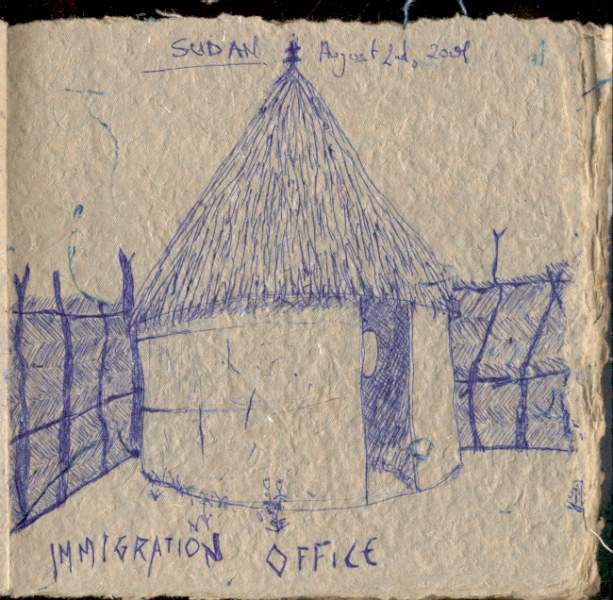 SUDAN August 2nd, 2001
IMMIGRATION OFFICE